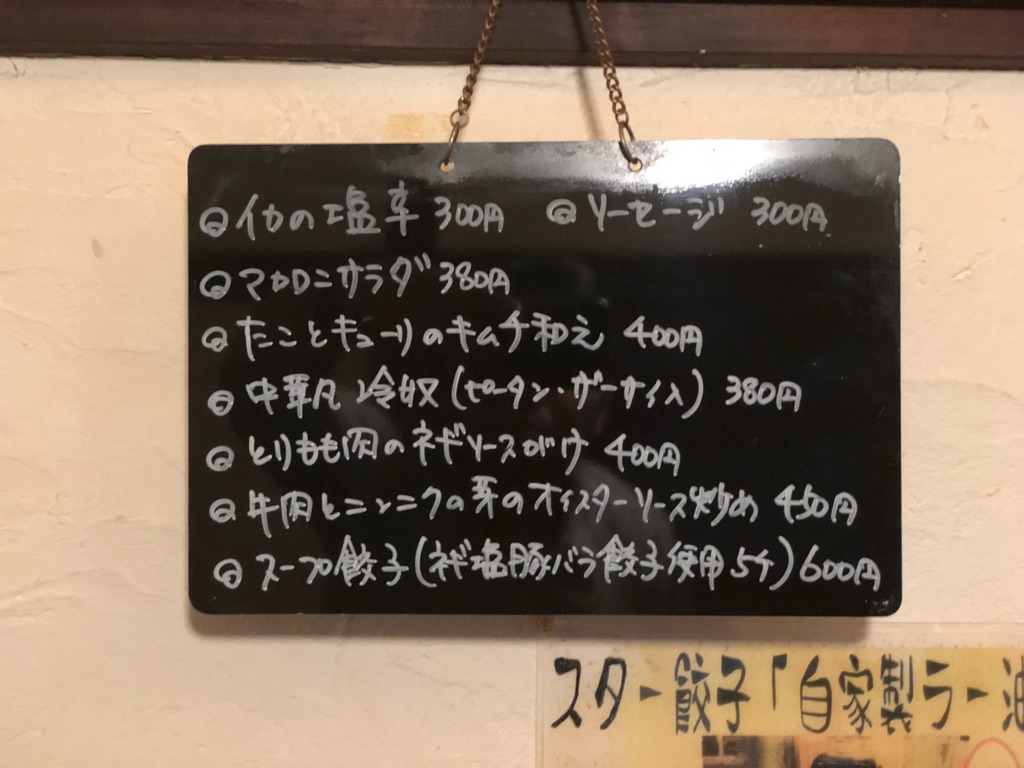 ◎イカの塩辛 300円 ◎ソーセージ 300円
◎マカロニサラダ 380円
◎たことキューリのキムチ和え 400円
◎中華風冷奴(ピータン・ザーサイ入) 380円
◎とりもも肉のネギソースがけ 400円
◎牛肉とニンニクの芽のオイスターソース炒め 450円
◎スープ餃子(ネギ塩豚バラ餃子使用5ケ) 600円
スター餃子「自家製ラー油